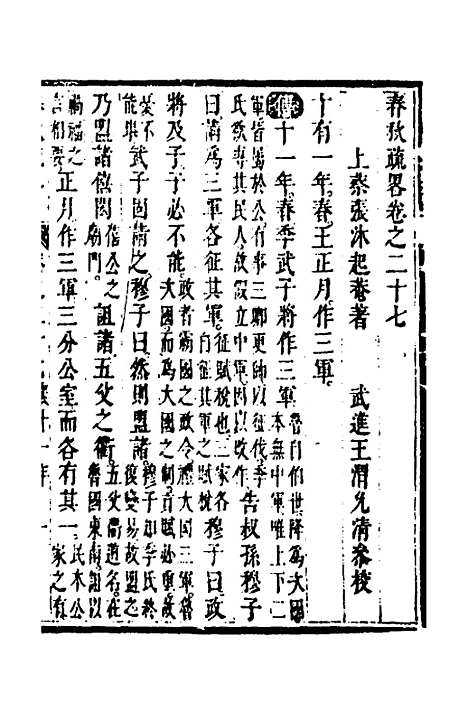 春秋疏畧卷之二十七
上蔡張沐起菴著 武進王渭允清參校
十有一年春王正月作三軍
傳十一年春季武子將作三軍魯自伯世降為大國本無中軍唯上下二
軍皆屬於公有事三卿更帥以征伐季氏欲專其民人故假立中軍因以改作告叔孫穆子
曰請為三軍各征其軍征賦稅也三家各自征其軍之賦稅穆子曰政
將及子子必不能政者霸國之政令禮大國三軍魯為大國之制貢賦必重故
憂不能堪武子固請之穆子曰然則盟諸穆子知季氏終復變易故盟之
乃盟諸僖閎僖公之廟門詛諸五父之衢五父衢道名在魯國東南詛以
禍福之言相要正月作三軍三分公室而各有其一民本公家之有